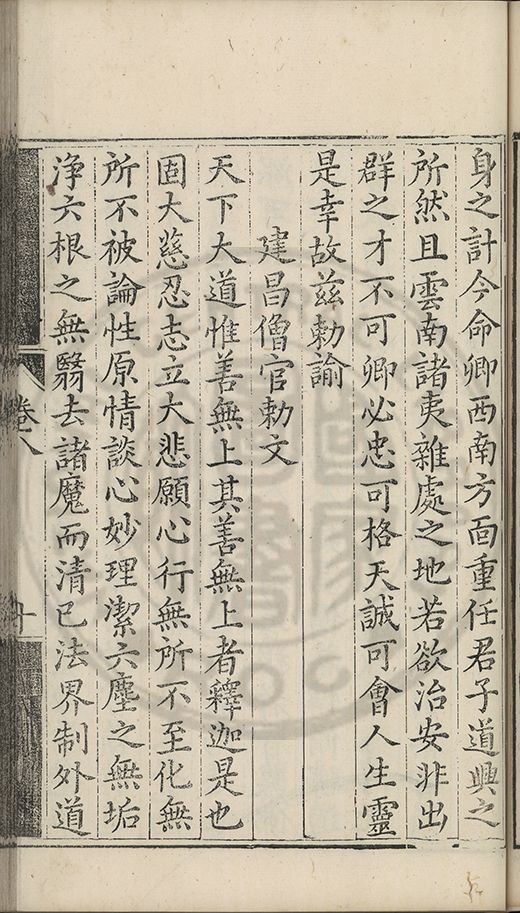 身之計今命卿西南方面重任君子道興之
所然且雲南諸夷雜處之地若欲治安非出
群之才不可卿必忠可格天誠可會人生靈
是幸故茲勅諭
建昌僧官勅文
天下大道惟善無上其善無上者釋迦是也
固大慈忍志立大悲願心行無所不至化無
所不被論性原情談心妙理潔六塵之無垢
淨六根之無翳去諸魔而清巳法界制外道
卷八
十